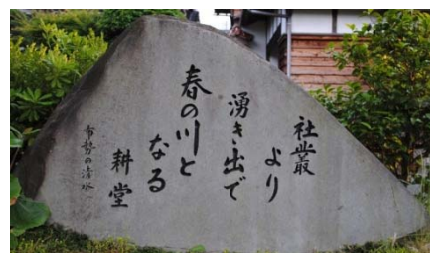 社叢
より
湧き出で
春の川と
なる
耕堂
常勢の清水